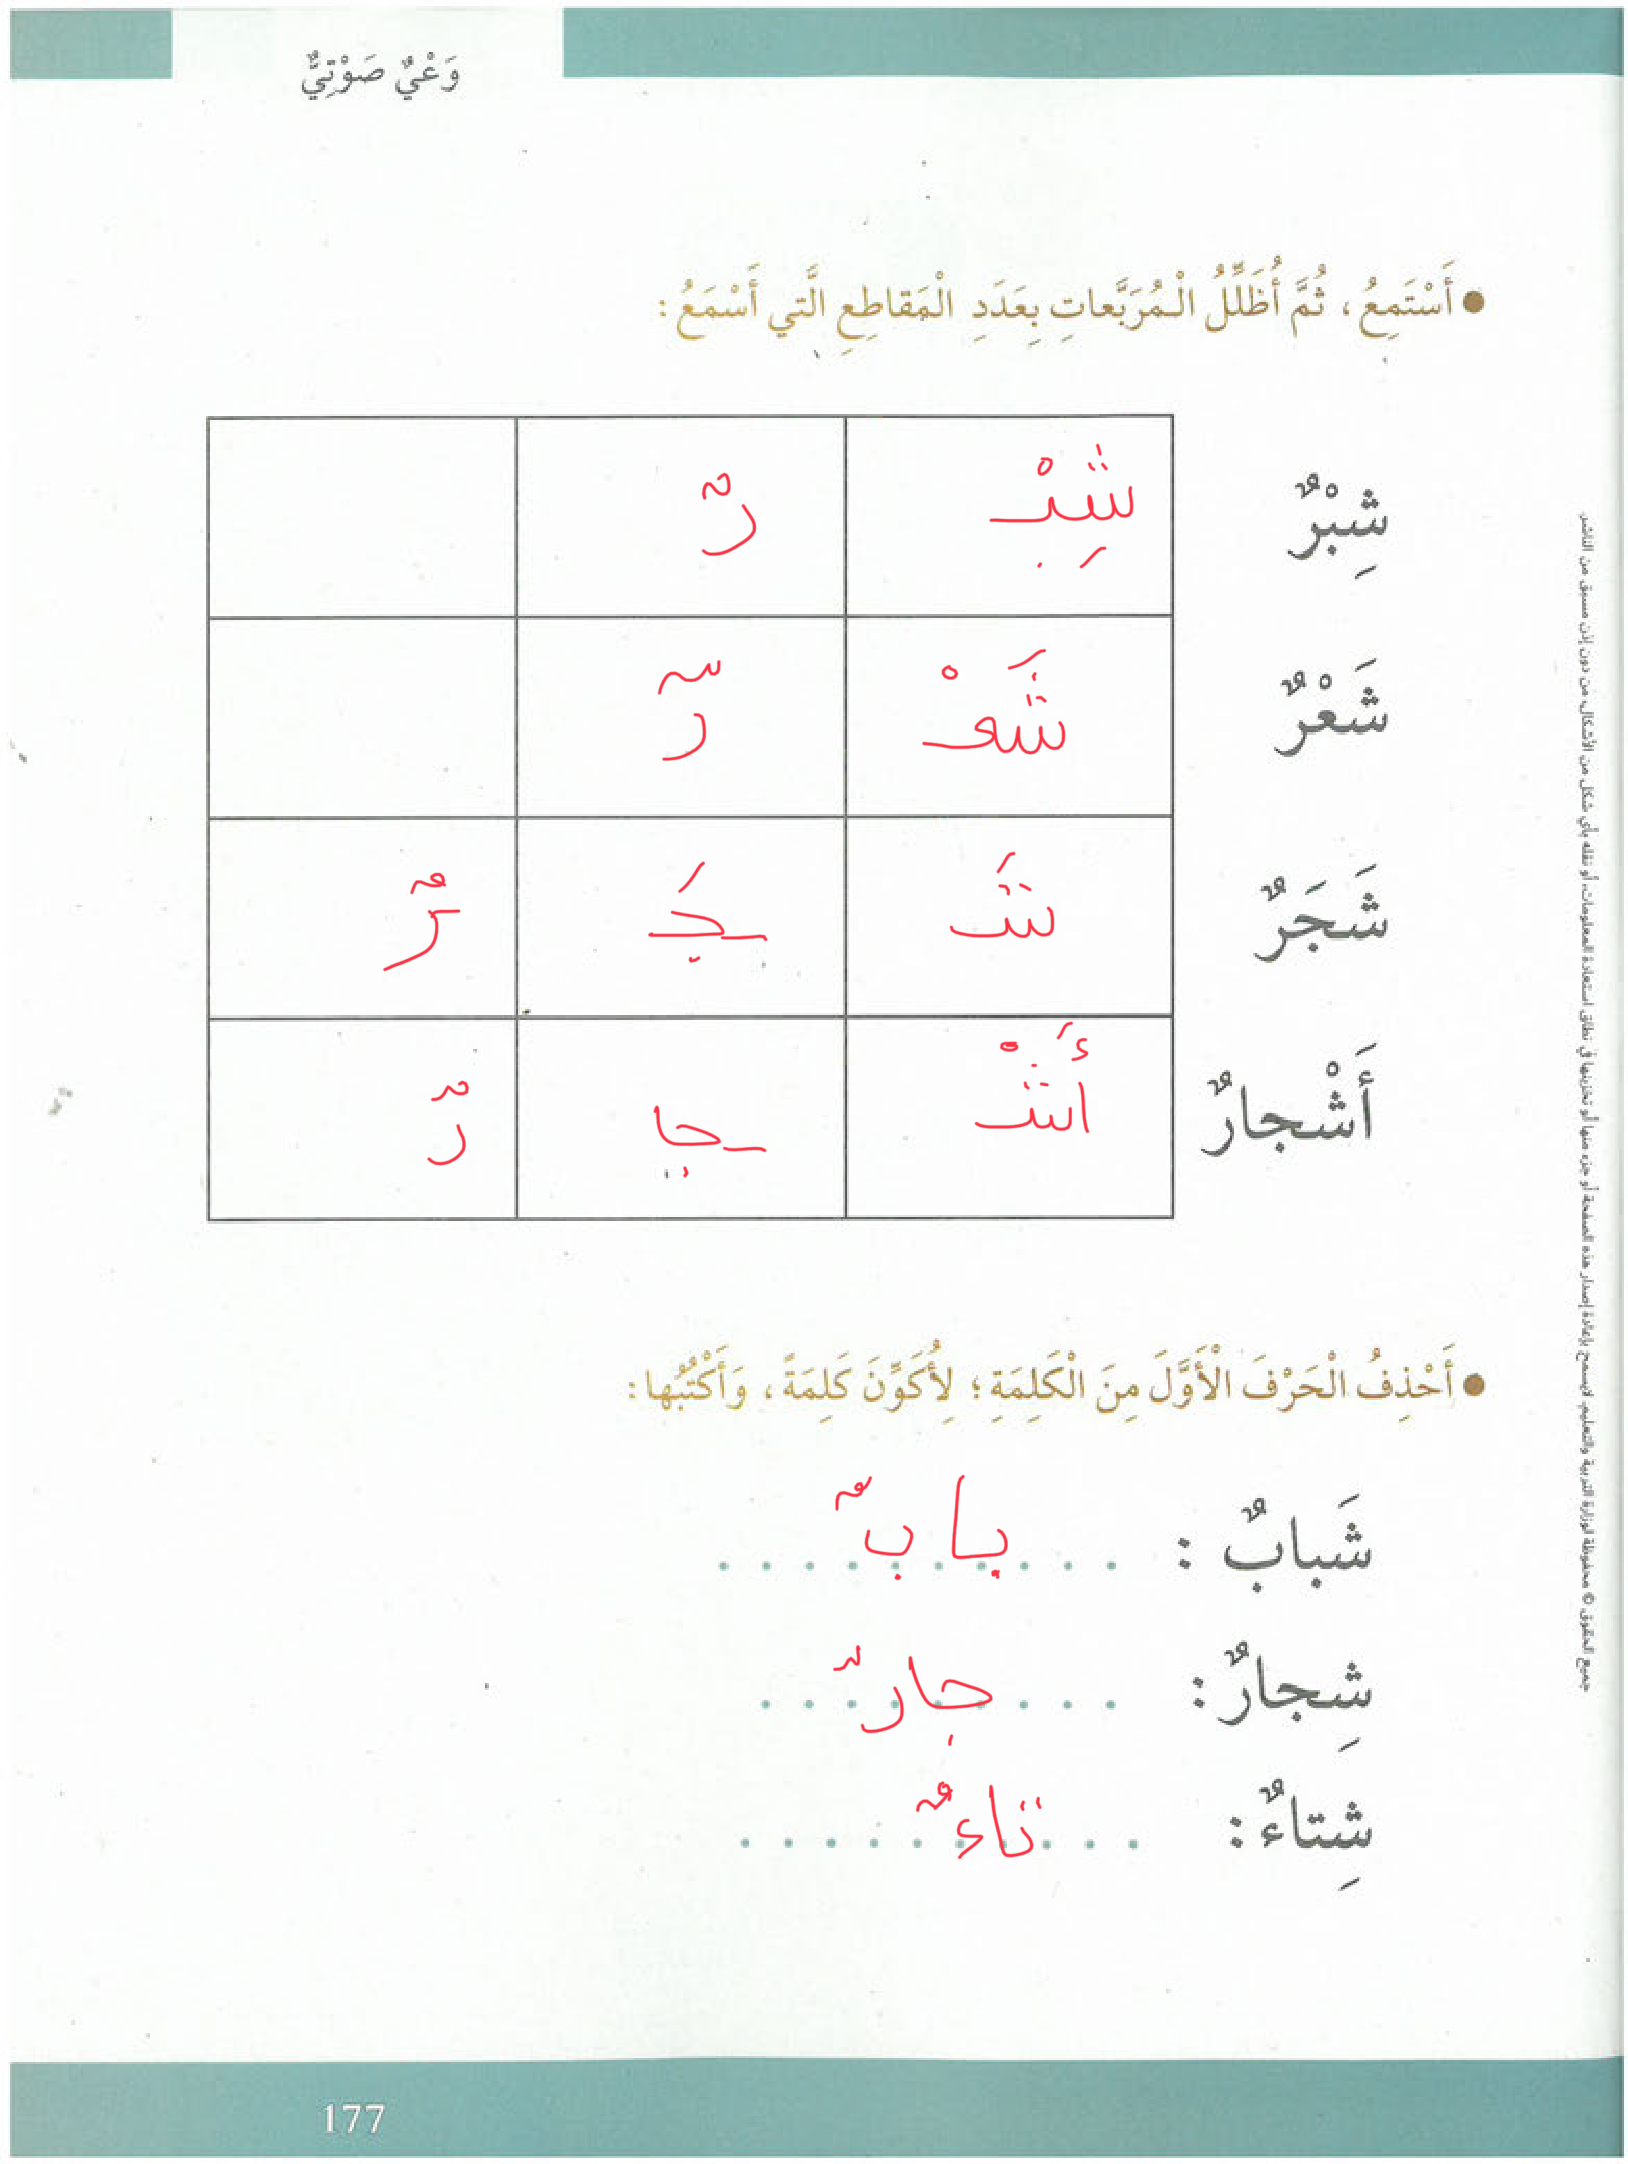 وَعْيٌ صَوْتِيٌّ
● أَسْتَمِعُ، ثُمَّ أُظَلِّلُ الْمُرَبَّعاتِ بِعَدَدِ الْمَقاطِعِ الَّتي أَسْمَعُ:
شِبْرٌ شِبْـ رٌ
شَعْرٌ شَعْـ رٌ
شَجَرٌ شَـ ـجَـ ـرٌ
أَشْجارٌ أَشْـ ـجا رٌ
● أَحْذِفُ الْحَرْفَ الْأَوَّلَ مِنَ الْكَلِمَةِ؛ لِأُكَوِّنَ كَلِمَةً، وَأَكْتُبُها:
شَبابٌ : بابٌ
شِجارٌ: جارٌ
شِتاءٌ: تاءٌ
جميع الحقوق © محفوظة لوزارة التربية والتعليم. لايسمح بإعادة إصدار هذه الصفحة أو جزء منها أو تخزينها في نطاق استعادة المعلومات، أو نقله بأي شكل من الأشكال، من دون إذن مسبق من الناشر.
177